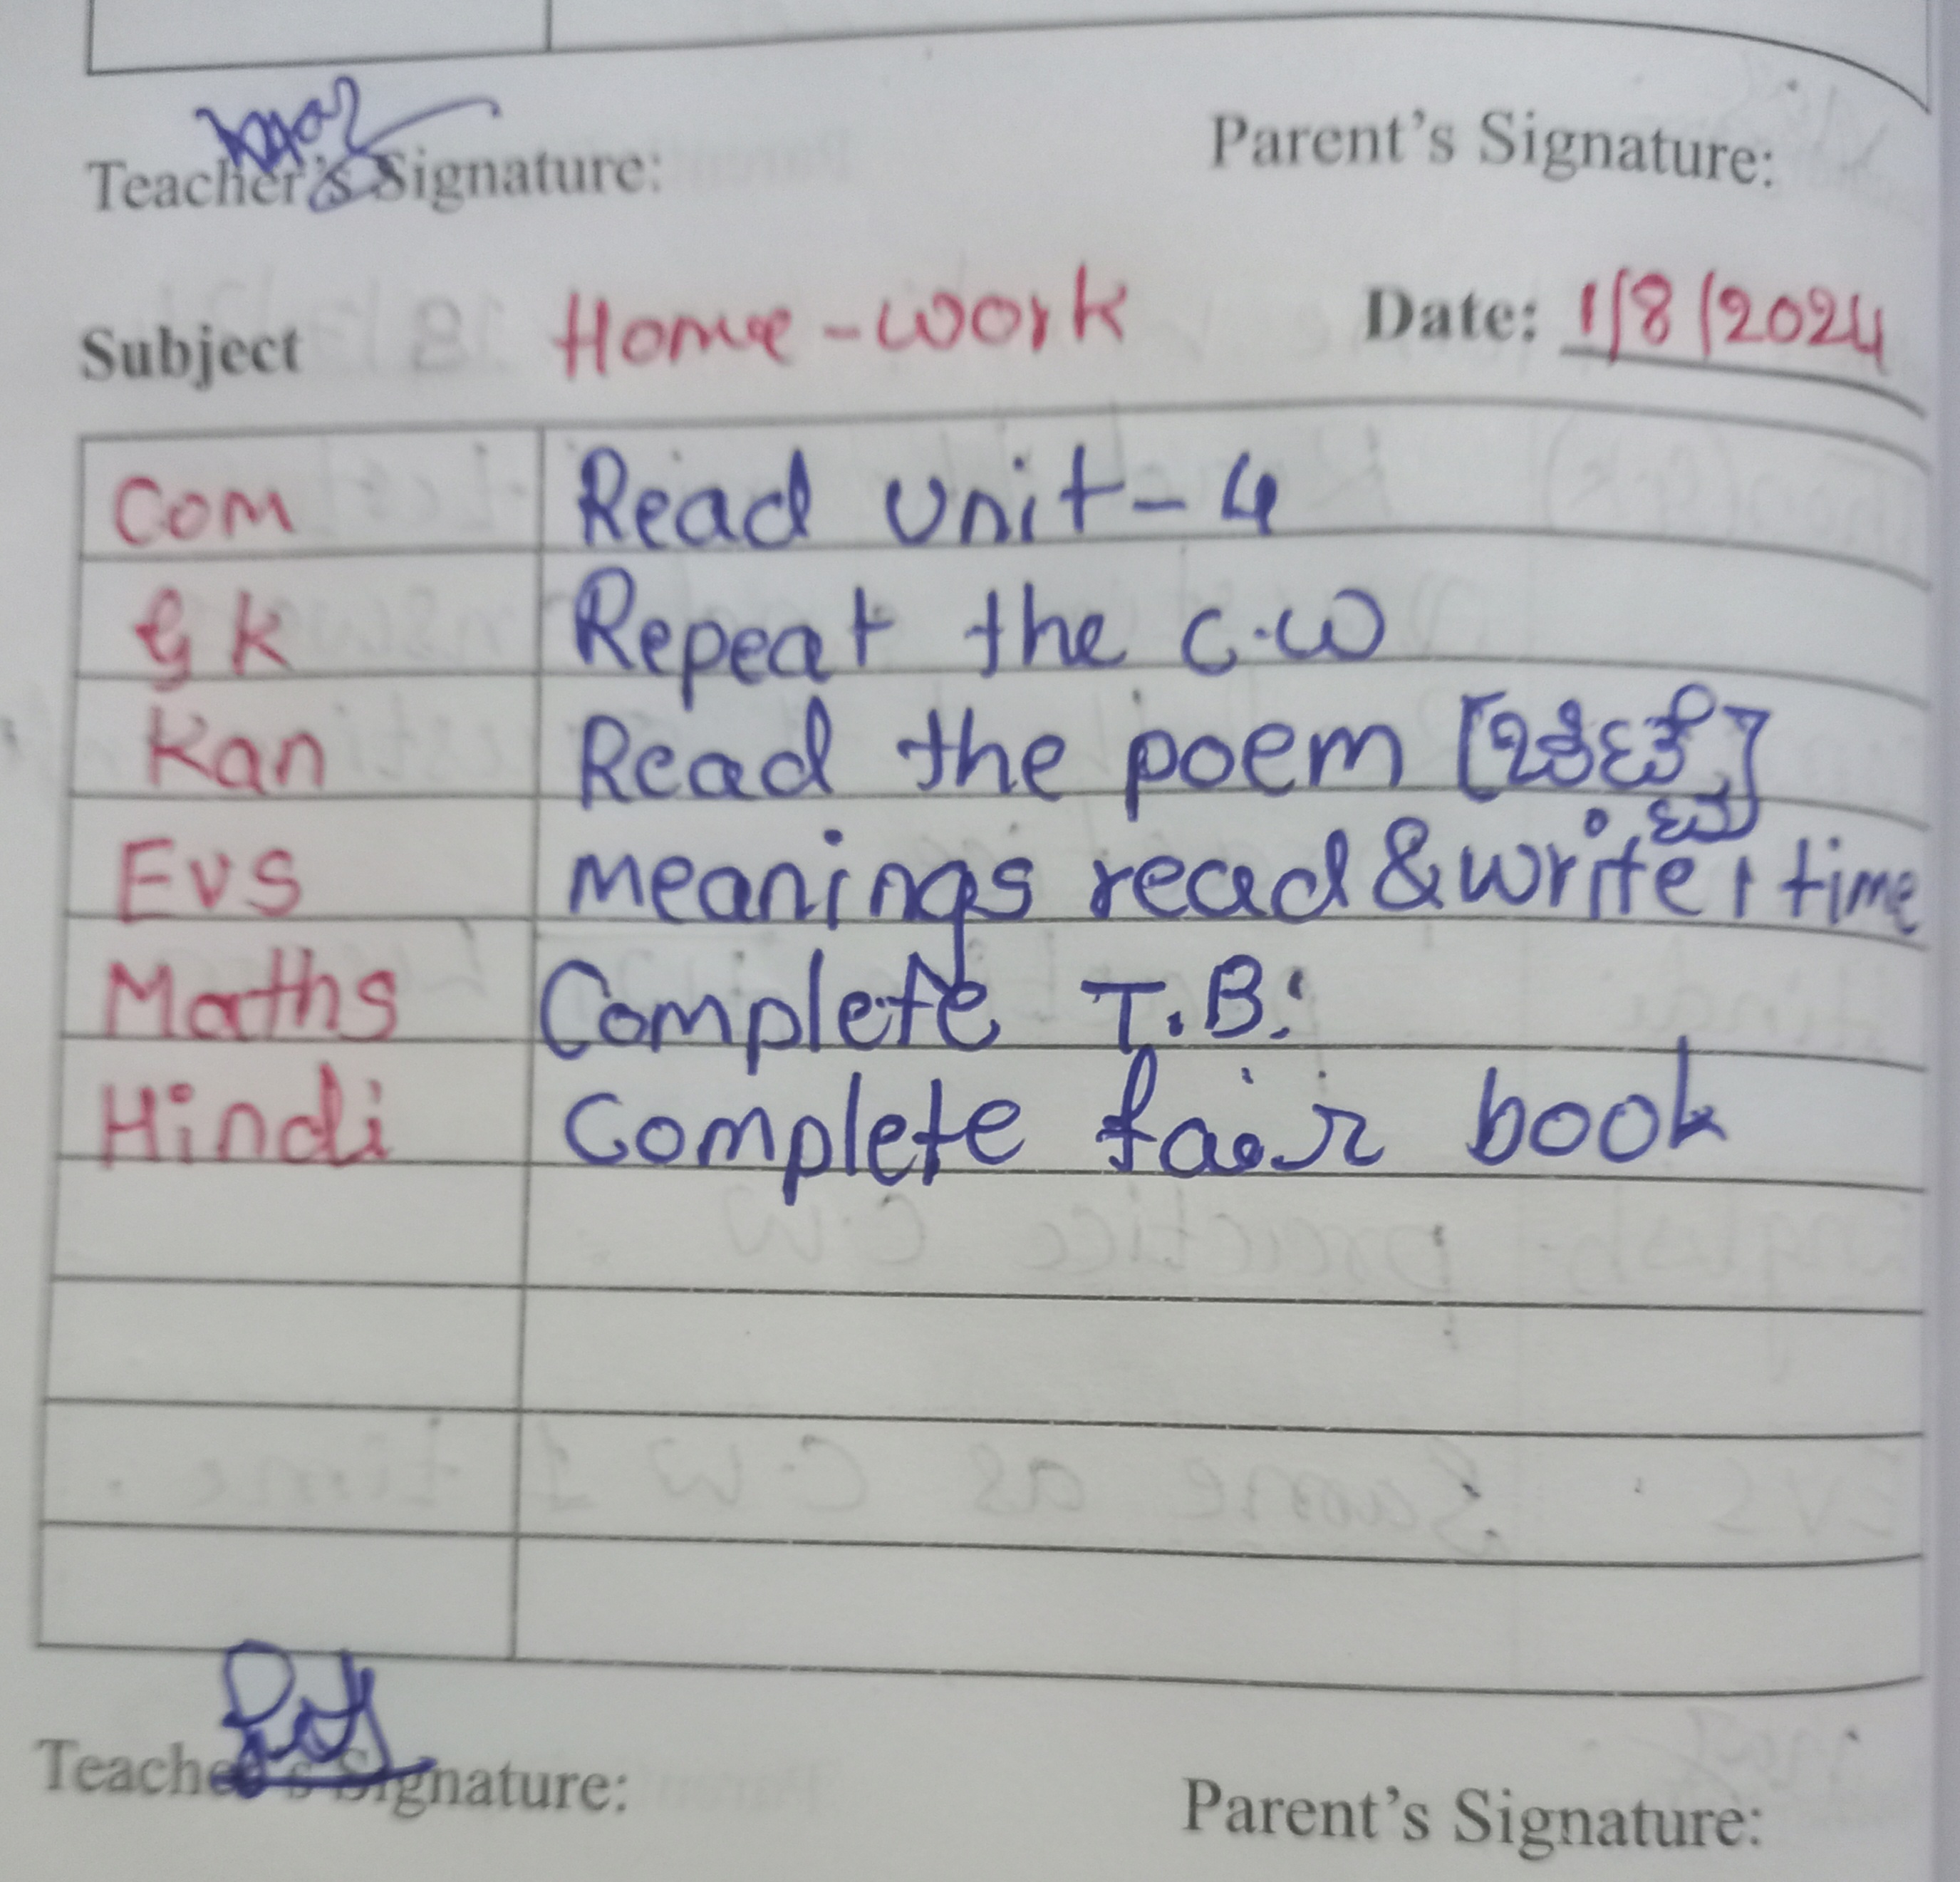 Teacher's Signature: Parent's Signature:
Subject Home-work Date: 1/8/2024
Com Read unit-4
GK Repeat the C.W
Kan Read the poem
EVS meanings read & write 1 time
Maths Complete T.B.
Hindi Complete fair book
Teacher's Signature:
Parent's Signature: